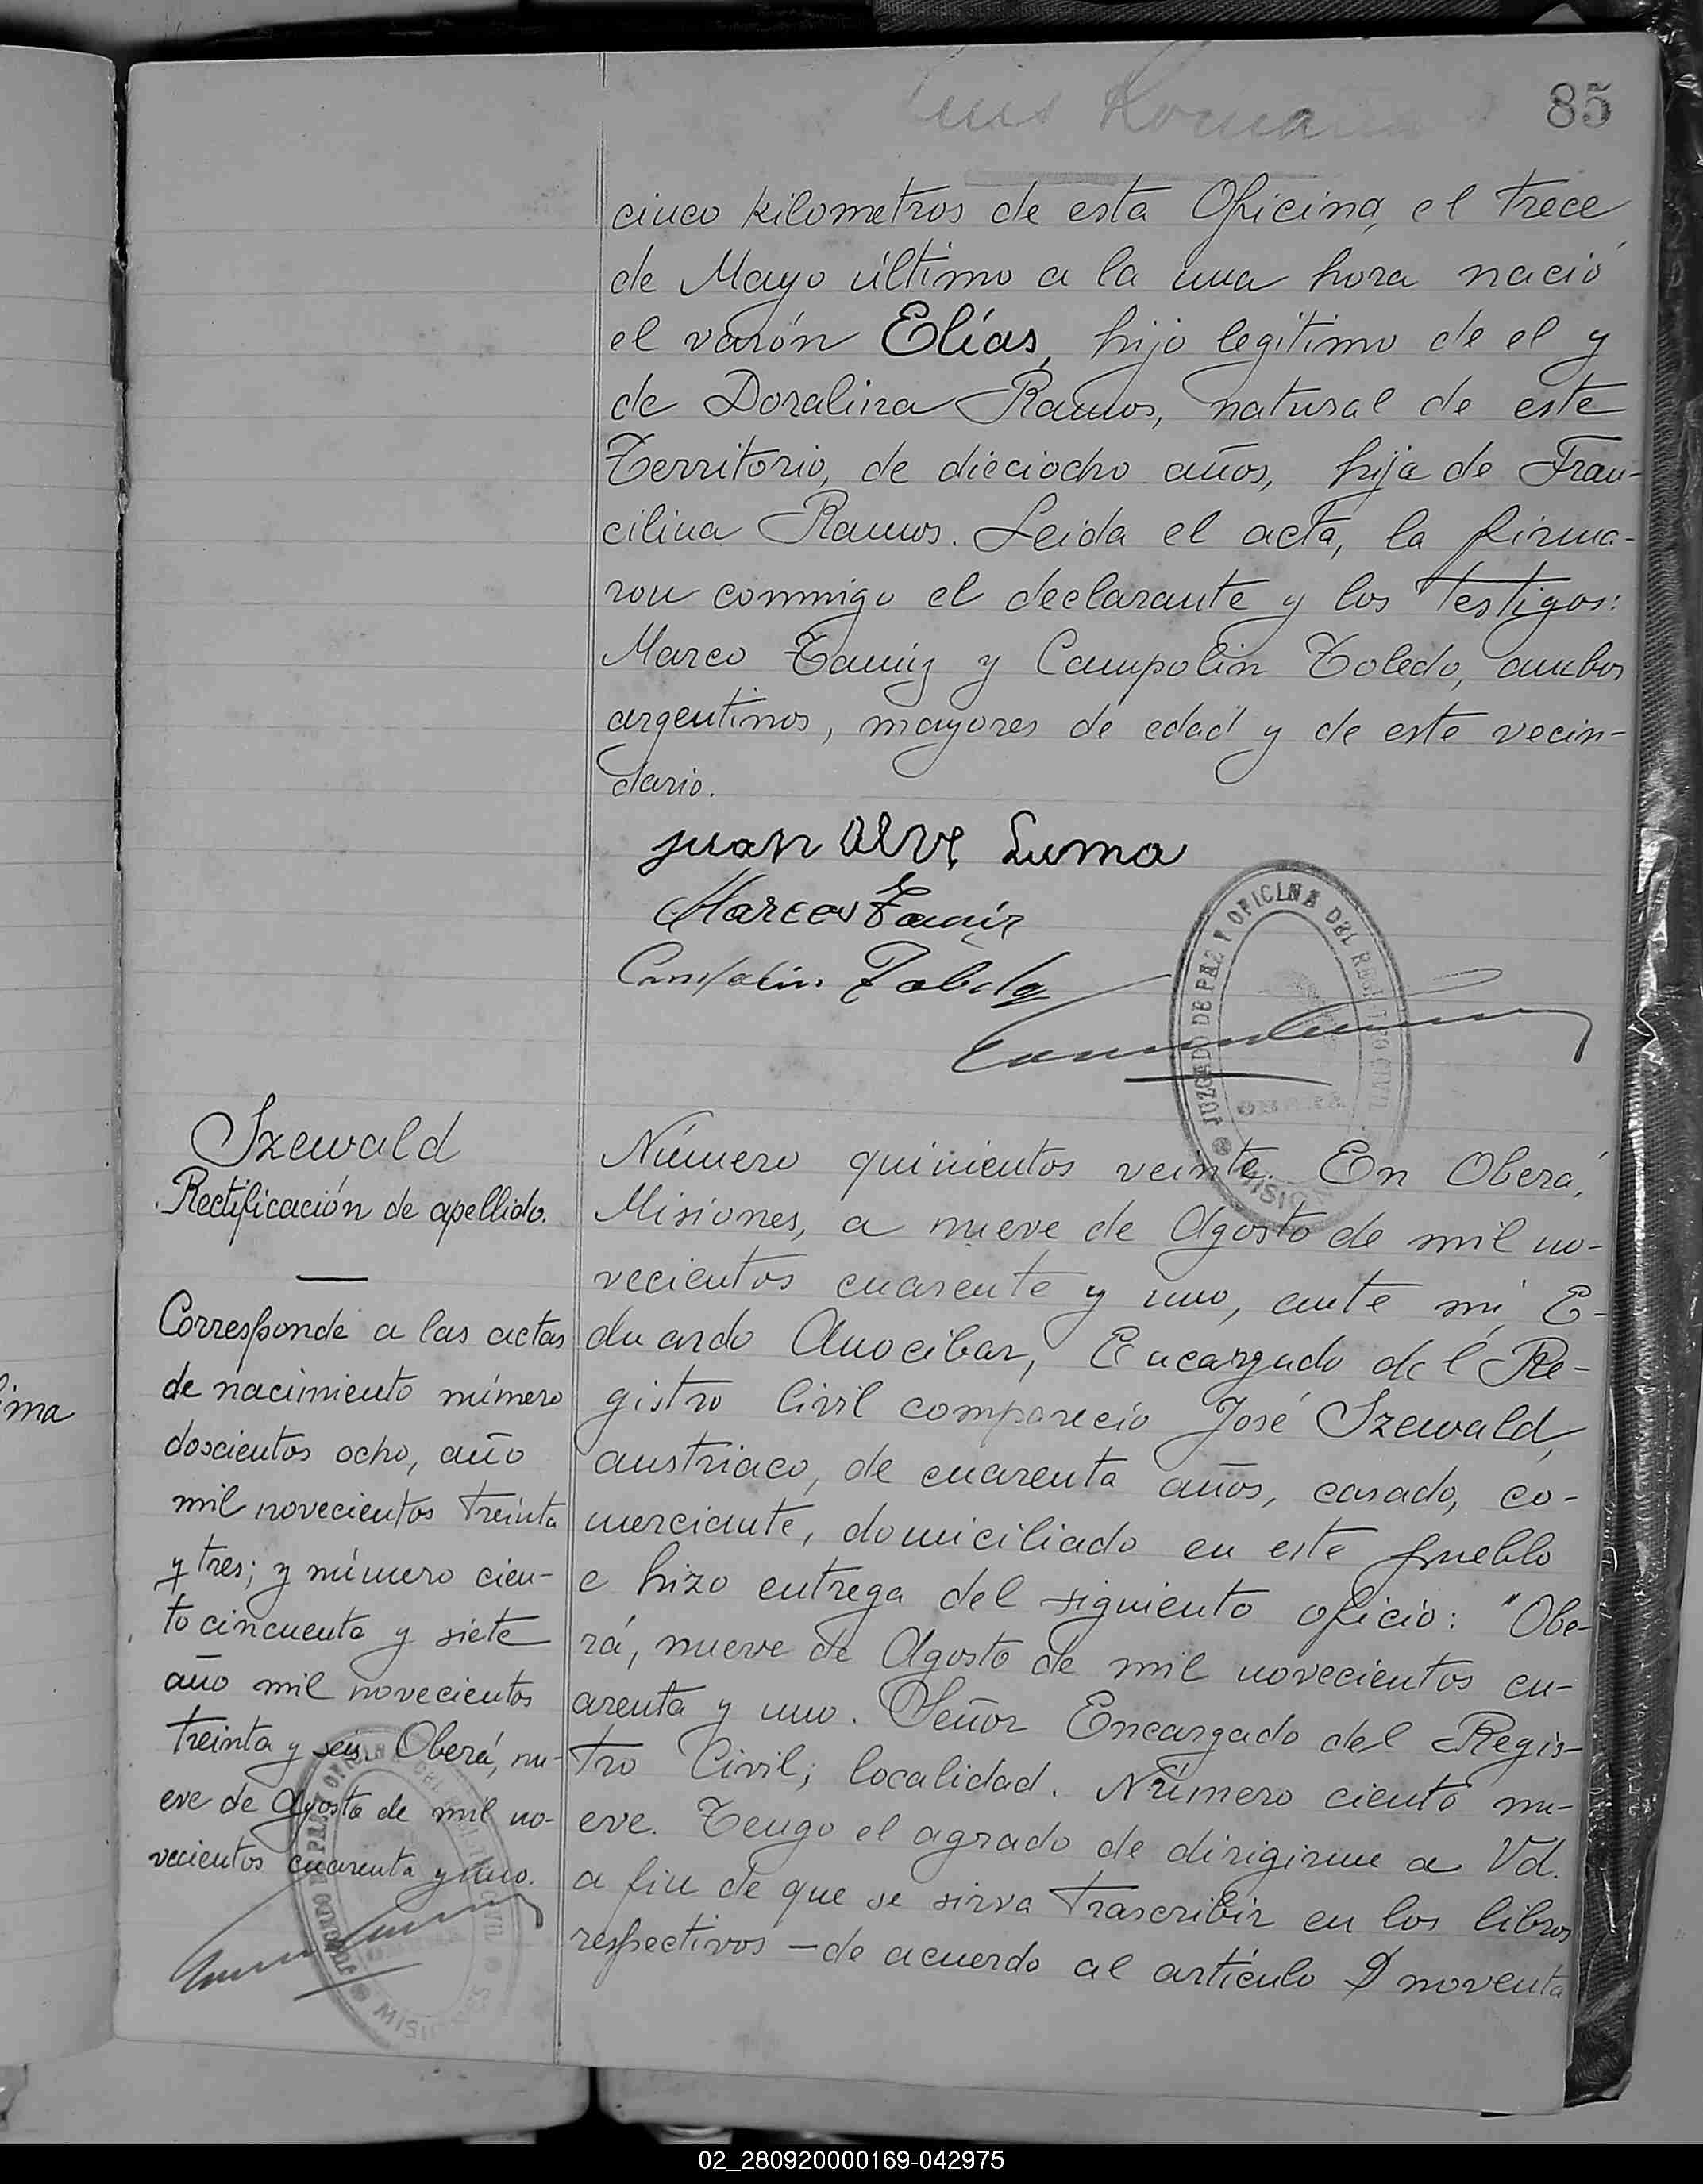 Luis Romana
85
cinco kilometros de esta Oficina, el trece
de Mayo último a la una hora nació
el varón Elías, hijo legitimo de el y
de Doralina Ramos, natural de este
Territorio, de dieciocho años, hija de Fran-
cilina Ramos. Leida el acta, la firma-
ron conmigo el declarante y los testigos:
Marco Tamiz y Campolin Toledo, ambos
argentinos, mayores de edad y de este vecin-
dario.
juan Alve Luma
Marcos Tamiz
Campolin Toledo
JUZGADO DE PAZ Y OFICINA DEL REGISTRO CIVIL
OBERA
MISIONES
Szewald
Rectificación de apellido.
Corresponde a las actas
de nacimiento número
doscientos ocho, año
mil novecientos treinta
y tres; y número cien-
to cincuenta y siete
año mil novecientos
treinta y seis. Oberá, nu-
eve de Agosto de mil no-
vecientos cuarenta y uno.
JUZGADO DE PAZ Y OFICINA DEL REGISTRO CIVIL
MISIONES
Número quinientos veinte. En Oberá,
Misiones, a nueve de Agosto de mil no-
vecientos cuarente y uno, ante mi, E-
duardo Anocibar, Encargado del Re-
gistro Civil compareció José Szewald,
austriaco, de cuarenta años, casado, co-
merciante, domiciliado en este pueblo
e hizo entrega del siguiento oficio: "Obe-
rá, nueve de Agosto de mil novecientos cu-
arenta y uno. Señor Encargado del Regis-
tro Civil; localidad. Número ciento nu-
eve. Tengo el agrado de dirigirme a Vd.
a fin de que se sirva trascribir en los libros
respectivos - de acuerdo al artículo noventa
ima
02_280920000169-042975